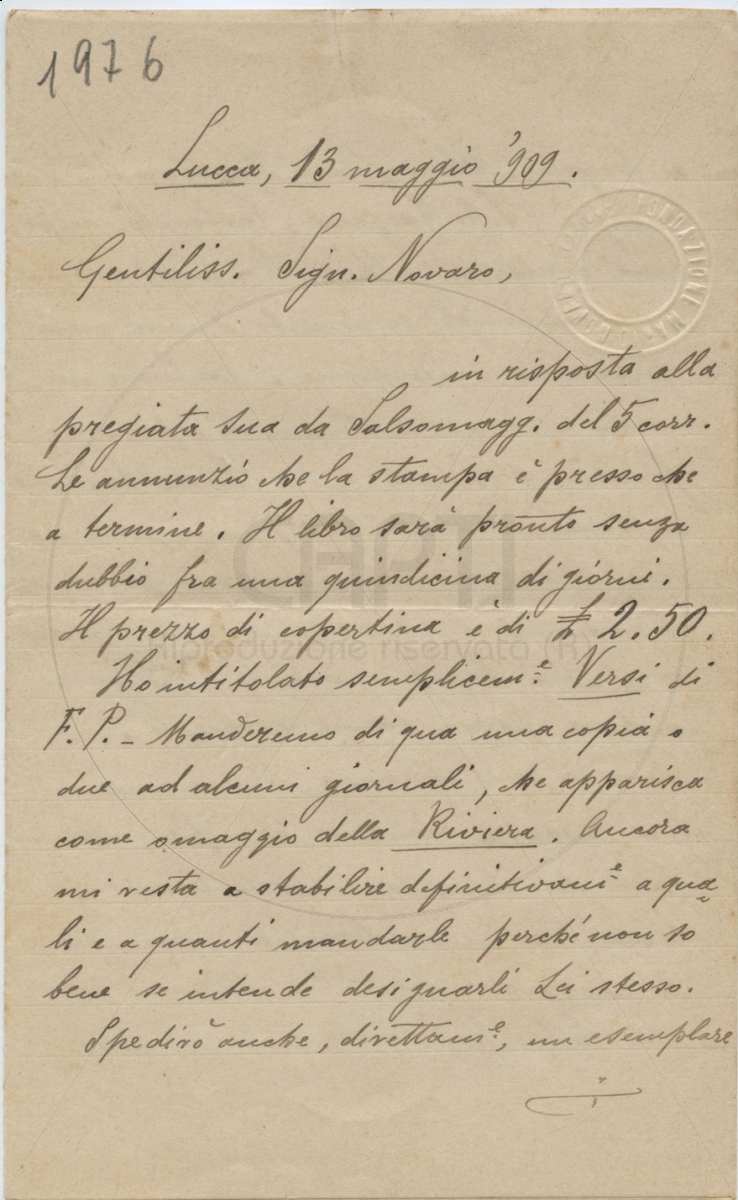 1976
Lucca, 13 maggio '909.
Gentiliss. Sign. Novaro,
in risposta alla
pregiata sua da Salsomagg. del 5 corr.
Le annunzio che la stampa è presso che
a termine. Il libro sarà pronto senza
dubbio fra una quindicina di giorni.
Il prezzo di copertina è di £ 2.50.
Ho intitolato semplicem.e Versi di
F. P. - Manderemo di qua una copia o
due ad alcuni giornali, che apparisca
come omaggio della Riviera. Ancora
mi resta a stabilire definitivam.e a qua=
li e a quanti mandarle perché non so
bene se intende designarli Lei stesso.
Spedirò anche, direttam.e, un esemplare
FONDAZIONE MAR
riproduzione riservata (R)